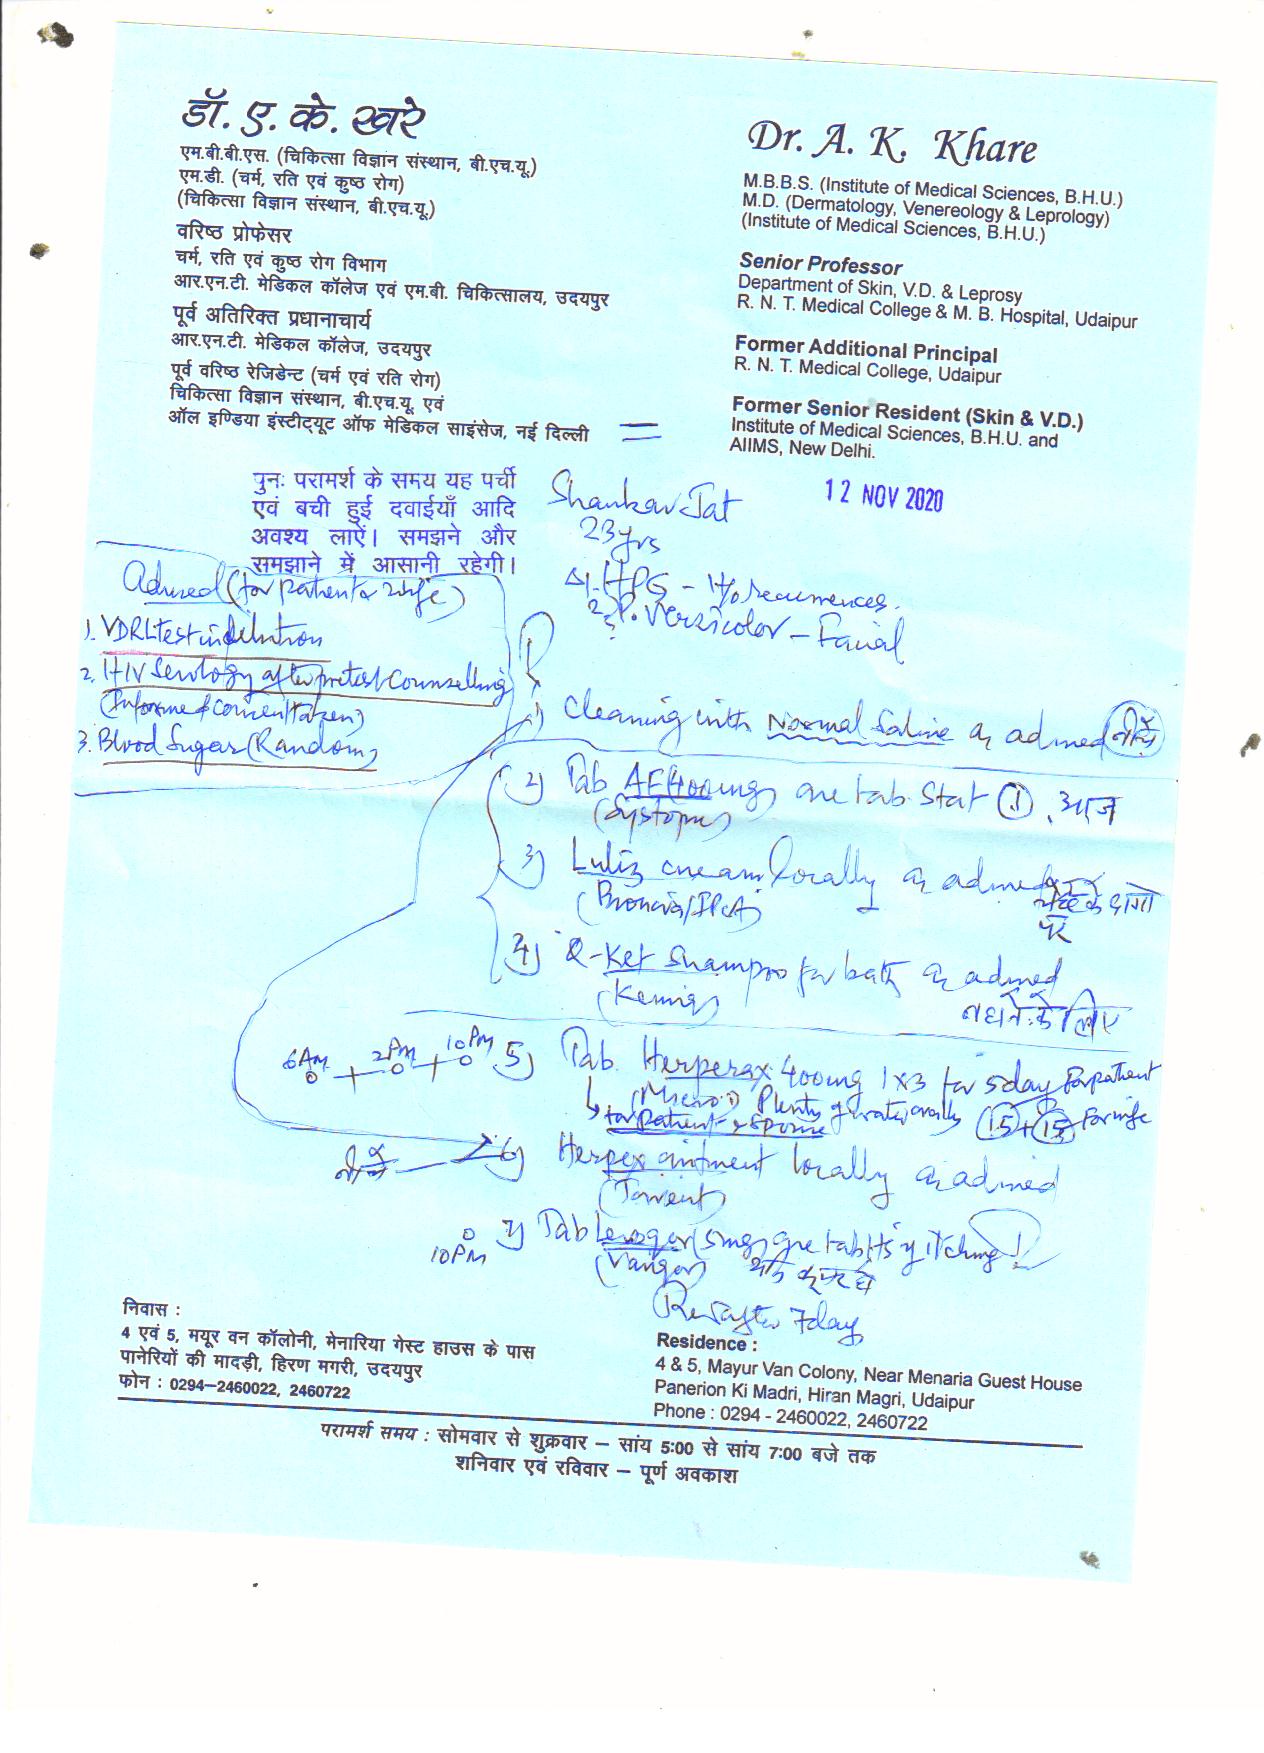 डॉ. ए. के. खरे
एम.बी.बी.एस. (चिकित्सा विज्ञान संस्थान, बी.एच.यू.)
एम.डी. (चर्म, रति एवं कुष्ठ रोग)
(चिकित्सा विज्ञान संस्थान, बी.एच.यू.)
वरिष्ठ प्रोफेसर
चर्म, रति एवं कुष्ठ रोग विभाग
आर.एन.टी. मेडिकल कॉलेज एवं एम.बी. चिकित्सालय, उदयपुर
पूर्व अतिरिक्त प्रधानाचार्य
आर.एन.टी. मेडिकल कॉलेज, उदयपुर
पूर्व वरिष्ठ रेजिडेन्ट (चर्म एवं रति रोग)
चिकित्सा विज्ञान संस्थान, बी.एच.यू. एवं
ऑल इण्डिया इंस्टीट्यूट ऑफ मेडिकल साइंसेज, नई दिल्ली
Dr. A. K. Khare
M.B.B.S. (Institute of Medical Sciences, B.H.U.)
M.D. (Dermatology, Venereology & Leprology)
(Institute of Medical Sciences, B.H.U.)
Senior Professor
Department of Skin, V.D. & Leprosy
R. N. T. Medical College & M. B. Hospital, Udaipur
Former Additional Principal
R. N. T. Medical College, Udaipur
Former Senior Resident (Skin & V.D.)
Institute of Medical Sciences, B.H.U. and
AIIMS, New Delhi.
पुनः परामर्श के समय यह पर्ची
एवं बची हुई दवाईयाँ आदि
अवश्य लाऐं। समझने और
समझाने में आसानी रहेगी।
12 NOV 2020
Shankar Jat
23yrs
1. HPG - H/o recurrences.
2. P. Versicolor - Facial
Advised (for patient & wife)
1. VDRL test in dilution
2. HIV Serology after pretest Counselling
(Informed consent taken)
3. Blood Sugar (Random)
1) Cleaning with Normal Saline as advised
2) Tab AF (400mg) one tab. Stat (1) आज
(Systopic)
3) Luliz cream locally as advised
चेहरे के दागों
पर
4) Q-Ket Shampoo for bath as advised
नहाने के लिए
6AM 2PM 10PM
5) Tab. Herperax 400mg 1x3 for 5 days for patient
(Micro) Plenty of water orally (15+15) for wife
for patient & spouse
6) Herpex ointment locally as advised
(Torrent)
7) Tab (5mg) one tab HS if itching!
10PM
Rev after 7days
निवास :
4 एवं 5, मयूर वन कॉलोनी, मेनारिया गेस्ट हाउस के पास
पानेरियों की मादड़ी, हिरण मगरी, उदयपुर
फोन : 0294–2460022, 2460722
Residence :
4 & 5, Mayur Van Colony, Near Menaria Guest House
Panerion Ki Madri, Hiran Magri, Udaipur
Phone : 0294 - 2460022, 2460722
परामर्श समय : सोमवार से शुक्रवार – सांय 5:00 से सांय 7:00 बजे तक
शनिवार एवं रविवार – पूर्ण अवकाश